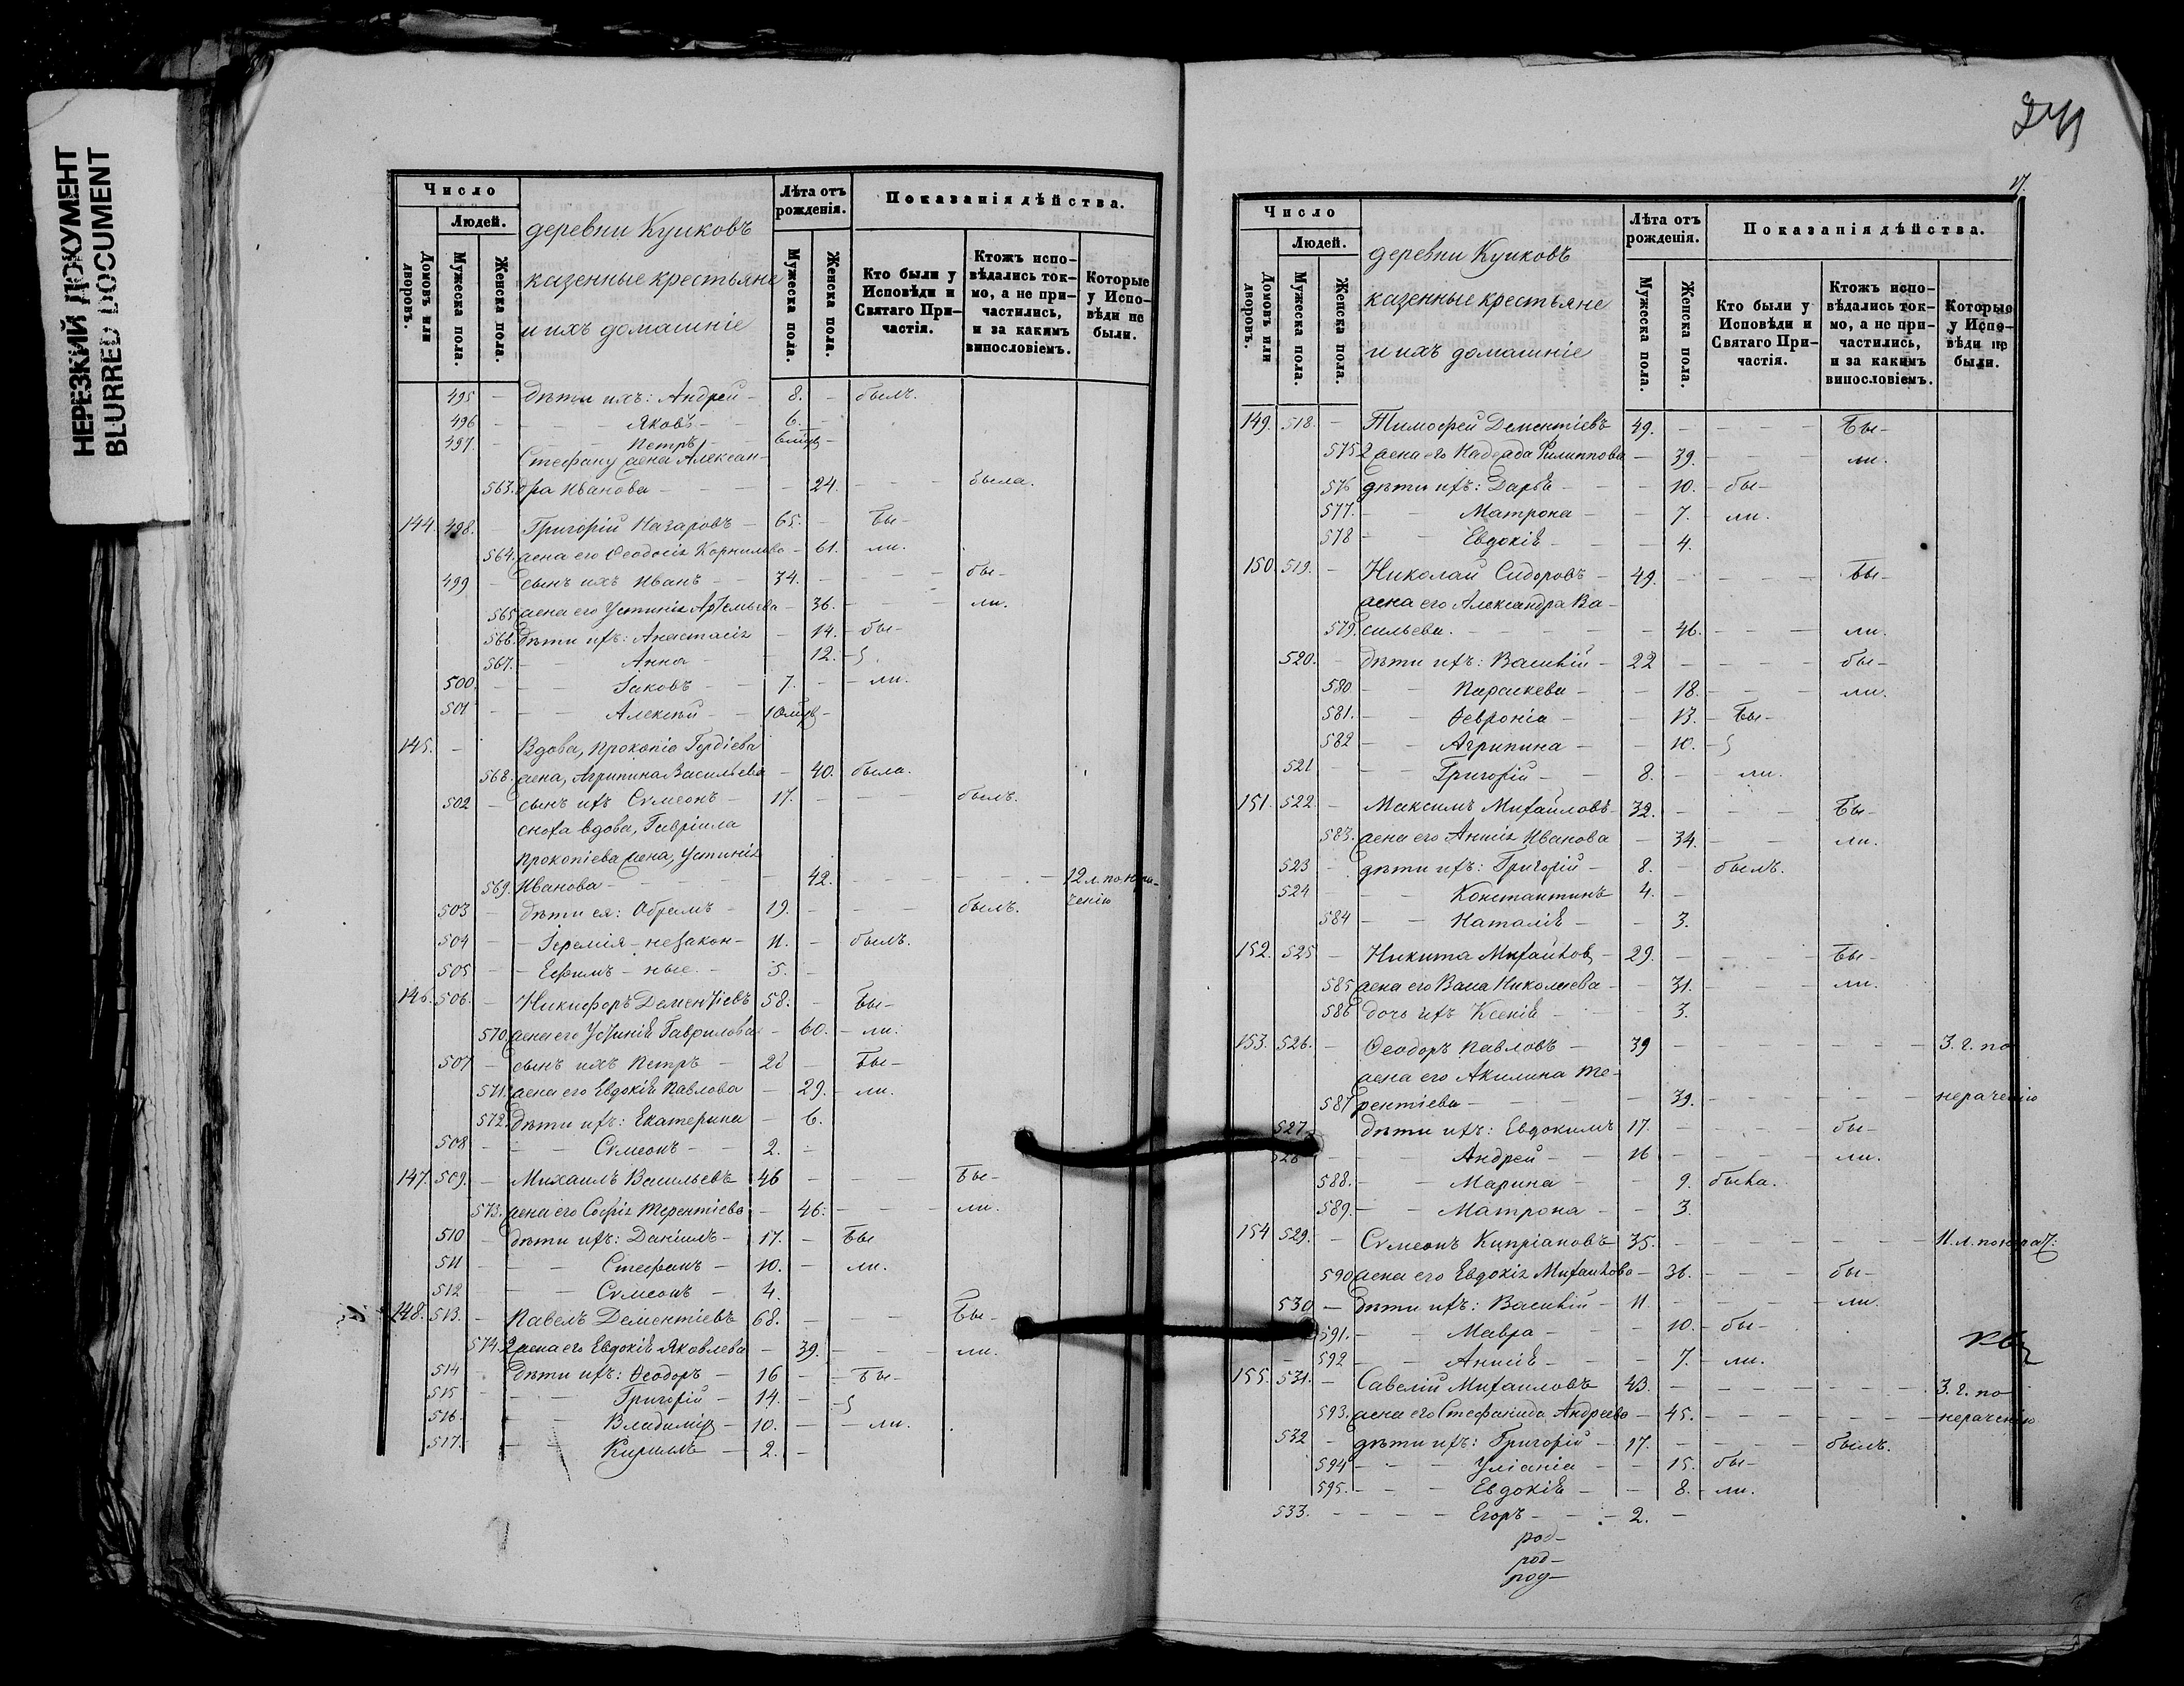 НЕРЕЗКИЙ ДОКУМЕНТ
BLURRED DOCUMENT
Число
Людей.
Домовъ или дворовъ.
Мужеска пола.
Женска пола.
деревни Куиковъ
казенные крестьяне
и ихъ домашніе
Лѣта отъ рожденія.
Мужеска пола.
Женска пола.
Показанія дѣйства.
Кто были у Исповѣди и Святаго При-частія.
Ктожъ испо-вѣдались ток-мо, а не при-частились, и за какимъ винословіемъ.
Которые у Испо-вѣди не были.
495 — дѣти ихъ: Андрей — 8. — былъ.
496 — — — Яковъ — 6. —
497. — — — Петръ — 6 мцъ —
Стефану жена Алексан-
563. дра Иванова — — 24. — — — была.
144. 498. — Григорій Назаровъ — 65. — бы-
564. жена его Ѳеодосія Корнильева — 61. ли.
499 — сынъ ихъ Иванъ — 34. — — — бы-
565 жена его Устинія Артемьева — 36. — — — ли.
566. дѣти ихъ: Анастасія — 14. — бы-
567. — — Анна — — 12. —
500. — — — Іаковъ — 7. — — ли.
501 — — — Алексѣй — 10 мцъ —
145. — Вдова, Прокопіа Гордіева
568. жена, Агрипина Васильева — 40. была.
502 — сынъ ихъ Сѵмеонъ — 17. — — — былъ.
сноха вдова, Гавріила
Прокопіева жена, Устинія
569. Иванова — — — 42. — — — — — 12 л. по нера-
чению
503 — дѣти ея: Абрамъ — 19. — — — былъ.
504 — — Іеремія — незакон- 11. — былъ.
505 — — Ефимъ — ные. — 5. —
146. 506. — Никифоръ Дементіевъ 58. — бы-
570. жена его Устинія Гаврилова — 60. — ли.
507 — сынъ ихъ Петръ — 28 — бы-
571. жена его Евдокія Павлова — 29. — ли.
572. дѣти ихъ: Екатерина — 6.
508 — — — Сѵмеонъ — 2. —
147. 509. — Михаилъ Васильевъ 46 — — — бы-
573. жена его Софія Терентіева — 46. — — — ли.
510 — дѣти ихъ: Даніилъ — 17. — бы
511 — — — Стефанъ — 10. — ли.
512 — — — Сѵмеонъ — 4.
148. 513. — Павелъ Дементіевъ 68. — — — бы-
574. 2 жена его Евдокія Яковлева — 39. — — — ли.
514 — дѣти ихъ: Ѳеодоръ — 16 — — бы-
515 — — Григорій — 14. — —
516. — — Владиміръ — 10. — — ли.
517. — — Кириллъ — 2. —
241
17.
Число
Людей.
Домовъ или дворовъ.
Мужеска пола.
Женска пола.
деревни Куиковъ
казенные крестьяне
и ихъ домашніе
Лѣта отъ рожденія.
Мужеска пола.
Женска пола.
Показанія дѣйства.
Кто были у Исповѣди и Святаго При-частія.
Ктожъ испо-вѣдались ток-мо, а не при-частились, и за какимъ винословіемъ.
Которые у Испо-вѣди не были.
149. 518. — Тимофей Дементіевъ 49. — — — — бы-
575 2 жена его Надежда Филиппова — 39. — — — ли.
576 дѣти ихъ: Дарья — — 10. — бы-
577. — — Матрона — — 7. — ли.
578 — — Евдокія — — 4.
150. 519. — Николай Сидоровъ — 49. — — — — бы-
жена его Александра Ва-
579. сильева. — — — 46. — — — ли.
520. — дѣти ихъ: Василій — 22 — — — — бы-
580 — — Параскева — — 18. — — — ли.
581. — — Февронія — — 13. — бы-
582 — — Агрипина — — 10. —
521 — — — Григорій — — 8. — — ли.
151. 522. — Максимъ Михайловъ — 32. — — — бы-
583. жена его Анисія Иванова — 34. — — — ли.
523 — дѣти ихъ: Григорій — 8. — былъ.
524 — — Константинъ 4. —
584 — — Наталія — — 3.
152. 525 — Никита Михайлов — 29. — — — — бы-
585 жена его Васса Николаева — — 31. — — — ли.
586 дочь ихъ Ксенія — — 3.
153. 526. — Ѳеодоръ Павловъ — 39 — — — — — — 3. г. по
жена его Акилина Те-
587 рентіева — — — 39. — — — — — нерачению
527. дѣти ихъ: Евдокимъ 17. — — — бы-
528 — — — Андрей — — 16 — — — — ли.
588. — — Марина — — 9. была.
589. — — Матрона — — 3.
154 529. — Сѵмеонъ Кипріановъ 35. — — — — — — 11. л. по нерач:
590 жена его Евдокія Михайлова — 36. — — — бы-
530 — дѣти ихъ: Василій — 11. — — — — ли.
591. — — Мавра — — 10. — бы-
592 — — Анисія — — 7. — ли.
155. 531. — Савелій Михаиловъ 43. — — — — — — 3. г. по
593. жена его Стефанида Андреева — 45. — — — — — — нерачению
532 — дѣти ихъ: Григорій — 17. — — — — былъ.
594 — — — Уліанія — — 15. бы-
595. — — — Евдокія — — 8. — ли.
533. — — — — Егоръ — — 2. —
род-
род-
род-